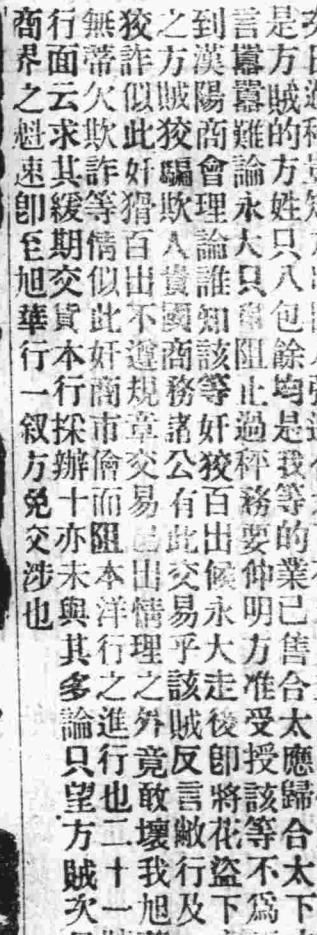 是方賊的方姓只八包餘均是我等的業已售合太應歸合太下
言囂囂難論永大只 阻止過秤務要仰明方准受授該等不爲
到漢陽商會理論誰知該等奸狡百出候永大走後卽將花盜下
之方賊狡騙欺人貴國商務諸公有此交易乎該賊反言敝行及
狡詐似此奸猾百出不遵規章交易 出情理之外竟敢壞我旭
無蒂欠欺詐等情似此奸商市儈而阻本洋行之進行也二十一
行面云求其緩期交貨本行採辦十亦未與其多論只望方賊次
商界之魁速卽至旭華行一叙方免交涉也